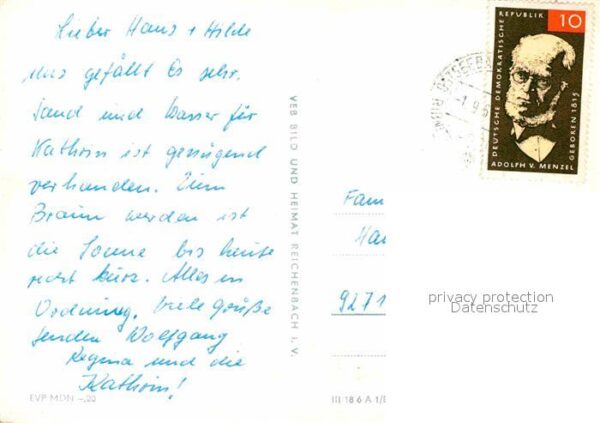 Lieber Hans + Hilde
uns gefällt Es sehr.
Sand und Wasser für
Kathrin ist genügend
vorhanden. Zum
Braun werden ist
die Sonne bis heute
recht kurz. Alles in
Ordnung. Viele Grüße
senden Wolfgang
Regina und die
Kathrin!
EVP MDN -,20
VEB BILD UND HEIMAT REICHENBACH I. V.
DEUTSCHE DEMOKRATISCHE REPUBLIK
10
ADOLPH V. MENZEL
GEBOREN 1815
OSTSEEBAD
Fam
Ha
9271
privacy protection
Datenschutz
III 18 6 A 1/